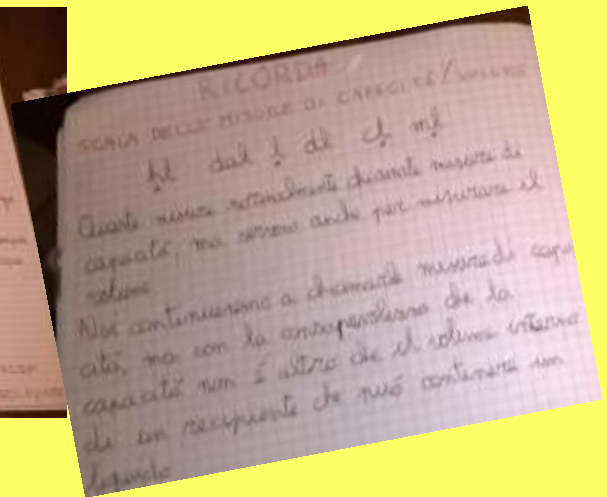 RICORDA
SCALA DELLE MISURE DI CAPACITÀ/VOLUME
hl dal l dl cl ml
Queste misure normalmente chiamate misure di
capacità, ma servono anche per misurare il
volume.
Noi continueremo a chiamarle misure di capa
cità, ma con la consapevolezza che la
capacità non è altro che il volume interno
di un recipiente che può contenere un
liquido